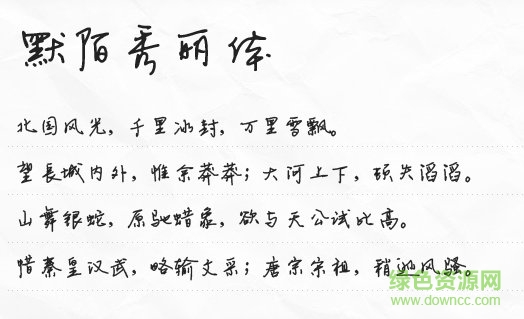 默陌秀丽体
北国风光，千里冰封，万里雪飘。
望長城内外，惟余莽莽；大河上下，顿失滔滔。
山舞银蛇，原驰蜡象，欲与天公试比高。
惜秦皇汉武，略输文采；唐宗宗祖，稍逊风骚。
绿色资源网
www.downcc.com